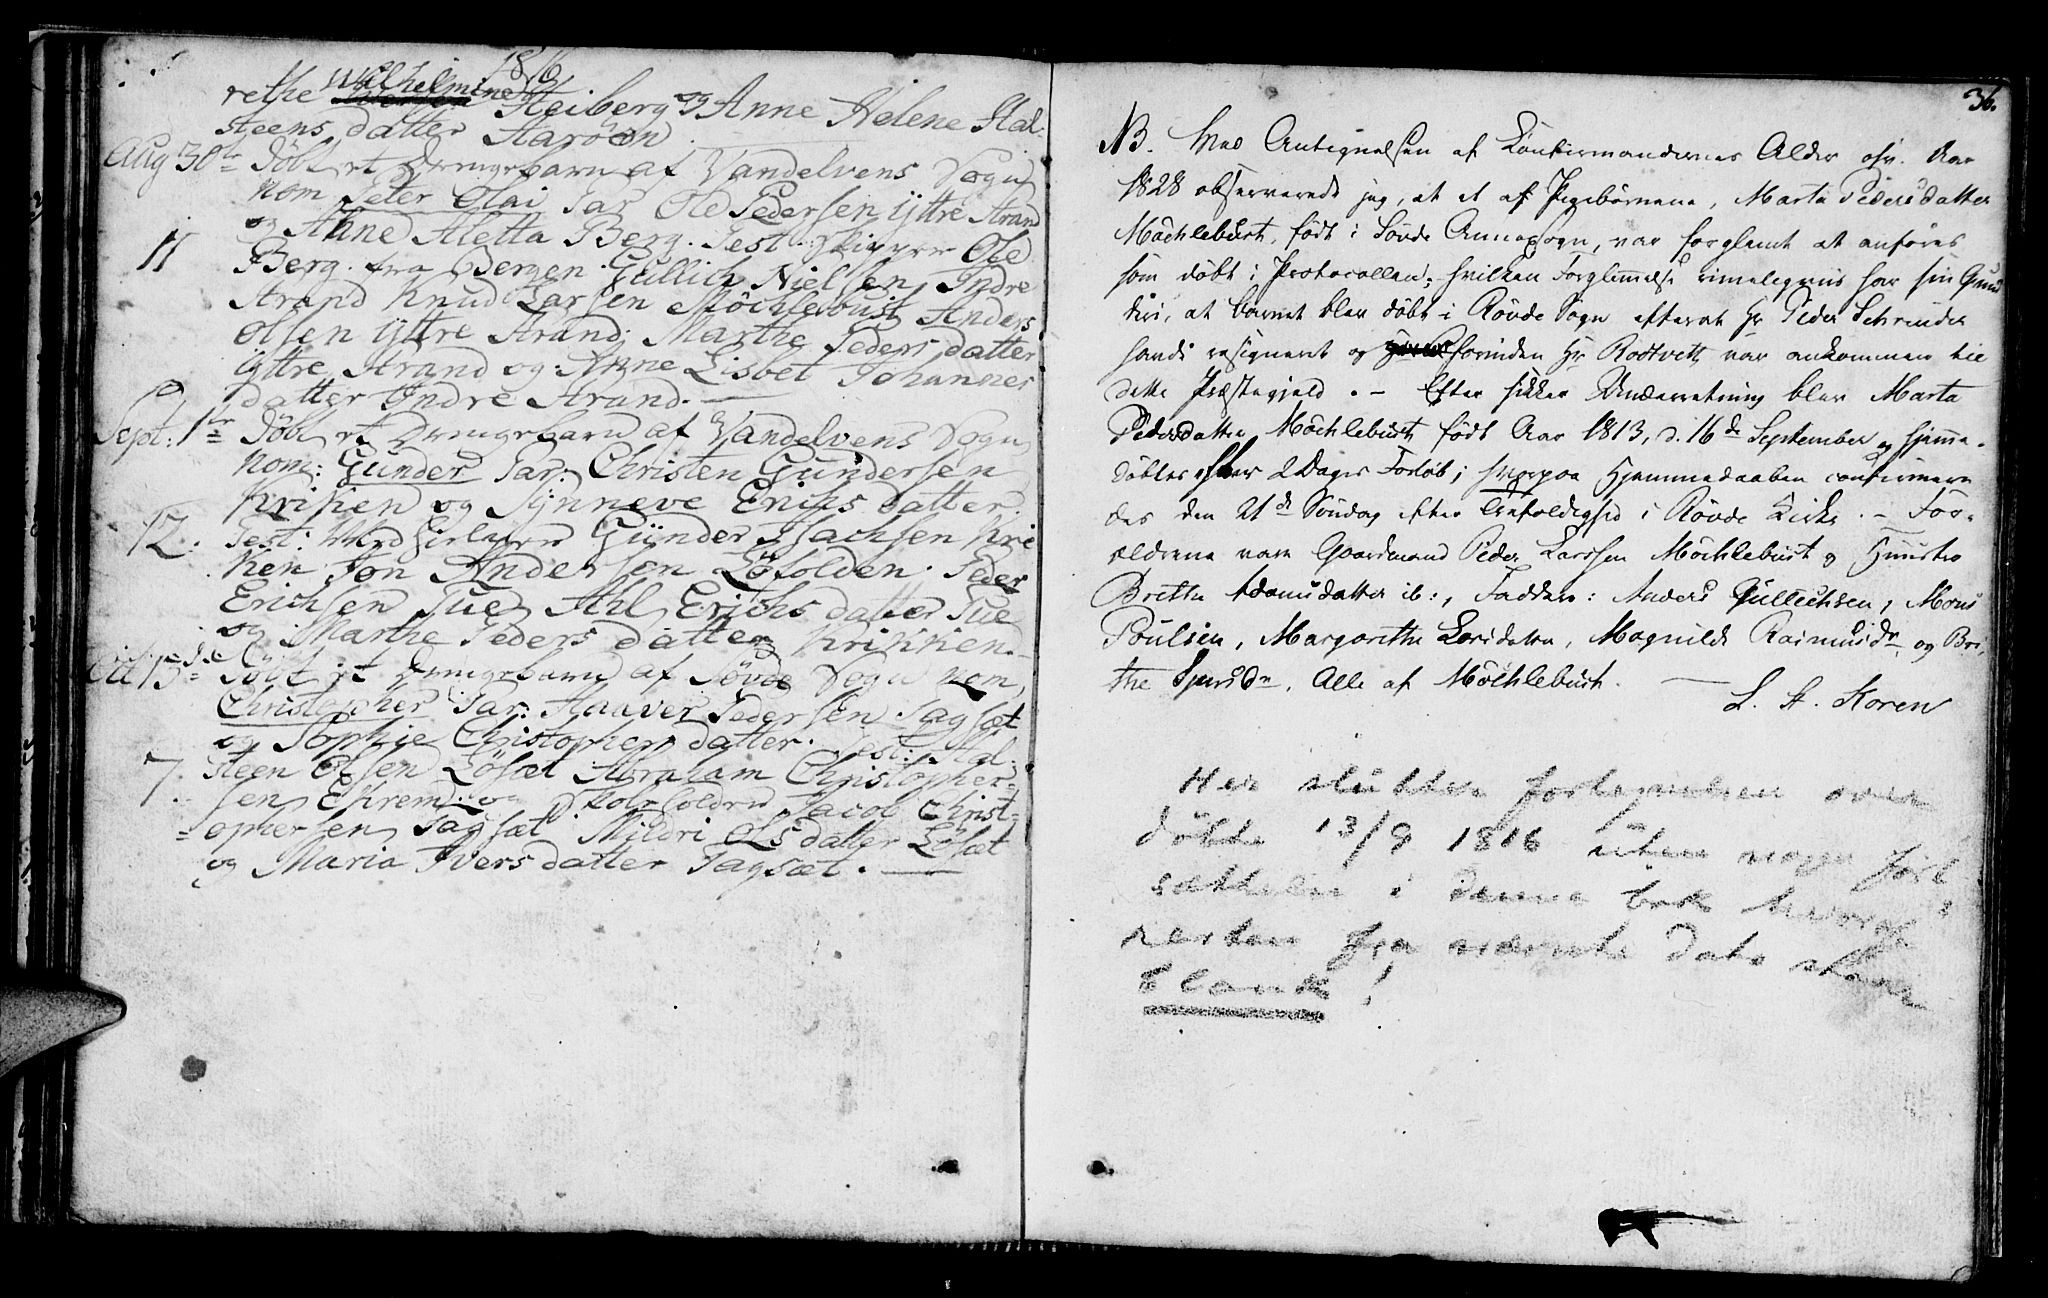 1816
rethe Wilhelmine Heiberg og Anne Helene Hal-
steens datter Aaröen
Aug 30te Döbt et Drengebarn af Vandelvens Sogn
nom Peter Olai Par Ole Pedersen Yttre Strand
og Anne Aletta Berg. Test: Skipper Ole
11 Berg fra Bergen Gullich Nielsen Indre
Strand Knud Larsen Möchlebust Anders
Olsen yttre Strand. Marthe Peders datter
yttre Strand og Anne Lisbet Johannes
datter Indre Strand. —
Sept: 1te Döbt et Drengebarn af Vandelvens Sogn
nom: Gunder Par: Christen Gundersen
Krikken og Synneve Erichs datter.
12. Test: Gunder Isachsen Kri
ken Jon Andersen Löfolden. Peder
Erichsen Tue, Erichs datter Tue
og Marthe Peders datter Krikken. —
Döbt et Drengebarn af Sövde Sogn nom
Christopher Par: Haaver Pedersen Sagsæt
og Sophie Christophers datter. Test: Hal-
7. steen Olsen Lösæt Abraham Christopher-
sen Ekrem og Jacob Christ-
ophersen Sagsæt Mildri Ols datter Lösæt
og Maria Ivers datter Sagsæt. —
36.
NB. Ved Antegnelsen af Confirmandernes Alder Aar
1828 observerede jeg, at et af Pigebörnene, Marta Pedersdatter
Möchlebust, födt i Sövde Annexsogn, var forglemt at anföres
som döbt i Protocollen; hvilken Forglemmelse rimeligviis har sin Grund
deri, at Barnet blev döbt i Rövde Sogn efterat Hr Peder Schrinder
havde resigneret og forinden Hr Rodtvett var ankommen til
dette Præstegjeld. — Efter sikker Underretning blev Marta
Pedersdatter Möchlebust födt Aar 1813, d. 16de September og hjemme-
döbtes 2 Dages Forlöb; hvorpaa Hjemmedaaben confirmere
des den 21de Söndag efter Trefoldighed i Rövde Kirke. — For-
ældrene vare Gaardmand Peder Larssen Möchlebust og Hustro
Brethe ib:, Faddere: Anders Gullichsen, Mons
Poulsen, Margrethe Larsdatter, Magnild Rasmusdr, og Bri-
the, Alle af Möchlebust. —
L. A. Koren
Her slutter fortegnelsen over
døbte 13/9 1816 uten nogen fort
settelse i denne bok hvorfor
resten fra nævnte dato staar
blank!